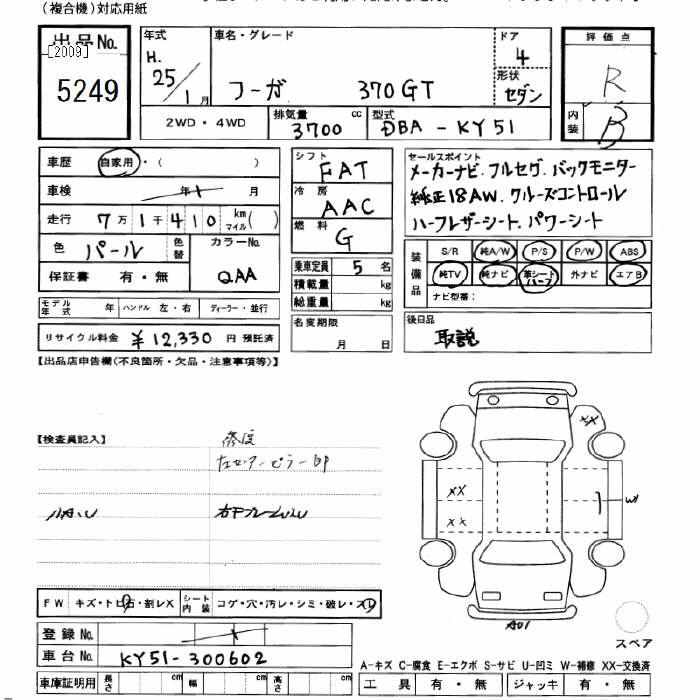 (複合機)対応用紙
出品No. [2009] 5249
年式 H. 25/1月
車名・グレード フーガ 370GT
ドア 4
形状 セダン
評価点 R
内装 B
2WD・4WD
排気量 3700 cc
型式 DBA-KY51
車歴 自家用・( )
車検 年 月
走行 7万1千410 km マイル( )
色 パール 色替
カラーNo. QAA
保証書 有・無
モデル年式 年 ハンドル 左・右 ディーラー・並行
リサイクル料金 ¥12,330円 預託済
シフト FAT
冷房 AAC
燃料 G
乗車定員 5名
積載量 kg
総重量 kg
名変期限 月 日
セールスポイント
メーカーナビ.フルセグ.バックモニター
純正18AW.クルーズコントロール
ハーフレザーシート.パワーシート
装備品
S/R 純A/W P/S P/W ABS
純TV 純ナビ 革シート ハーフ 外ナビ エアB
ナビ型番:
後日品
取説
【出品店申告欄(不良箇所・欠品・注意事項等)】
【検査員記入】
修復
左センターピラーBP
XX
XX
XX
W
A01
スペア
FW キズ・トビ石・割レX
シート内装 コゲ・穴・汚レ・シミ・破レ・スレ
登録No.
車台No. KY51-300602
車庫証明用 長さ cm 幅 cm 高さ cm
A-キズ C-腐食 E-エクボ S-サビ U-凹ミ W-補修 XX-交換済
工具 有・無 ジャッキ 有・無